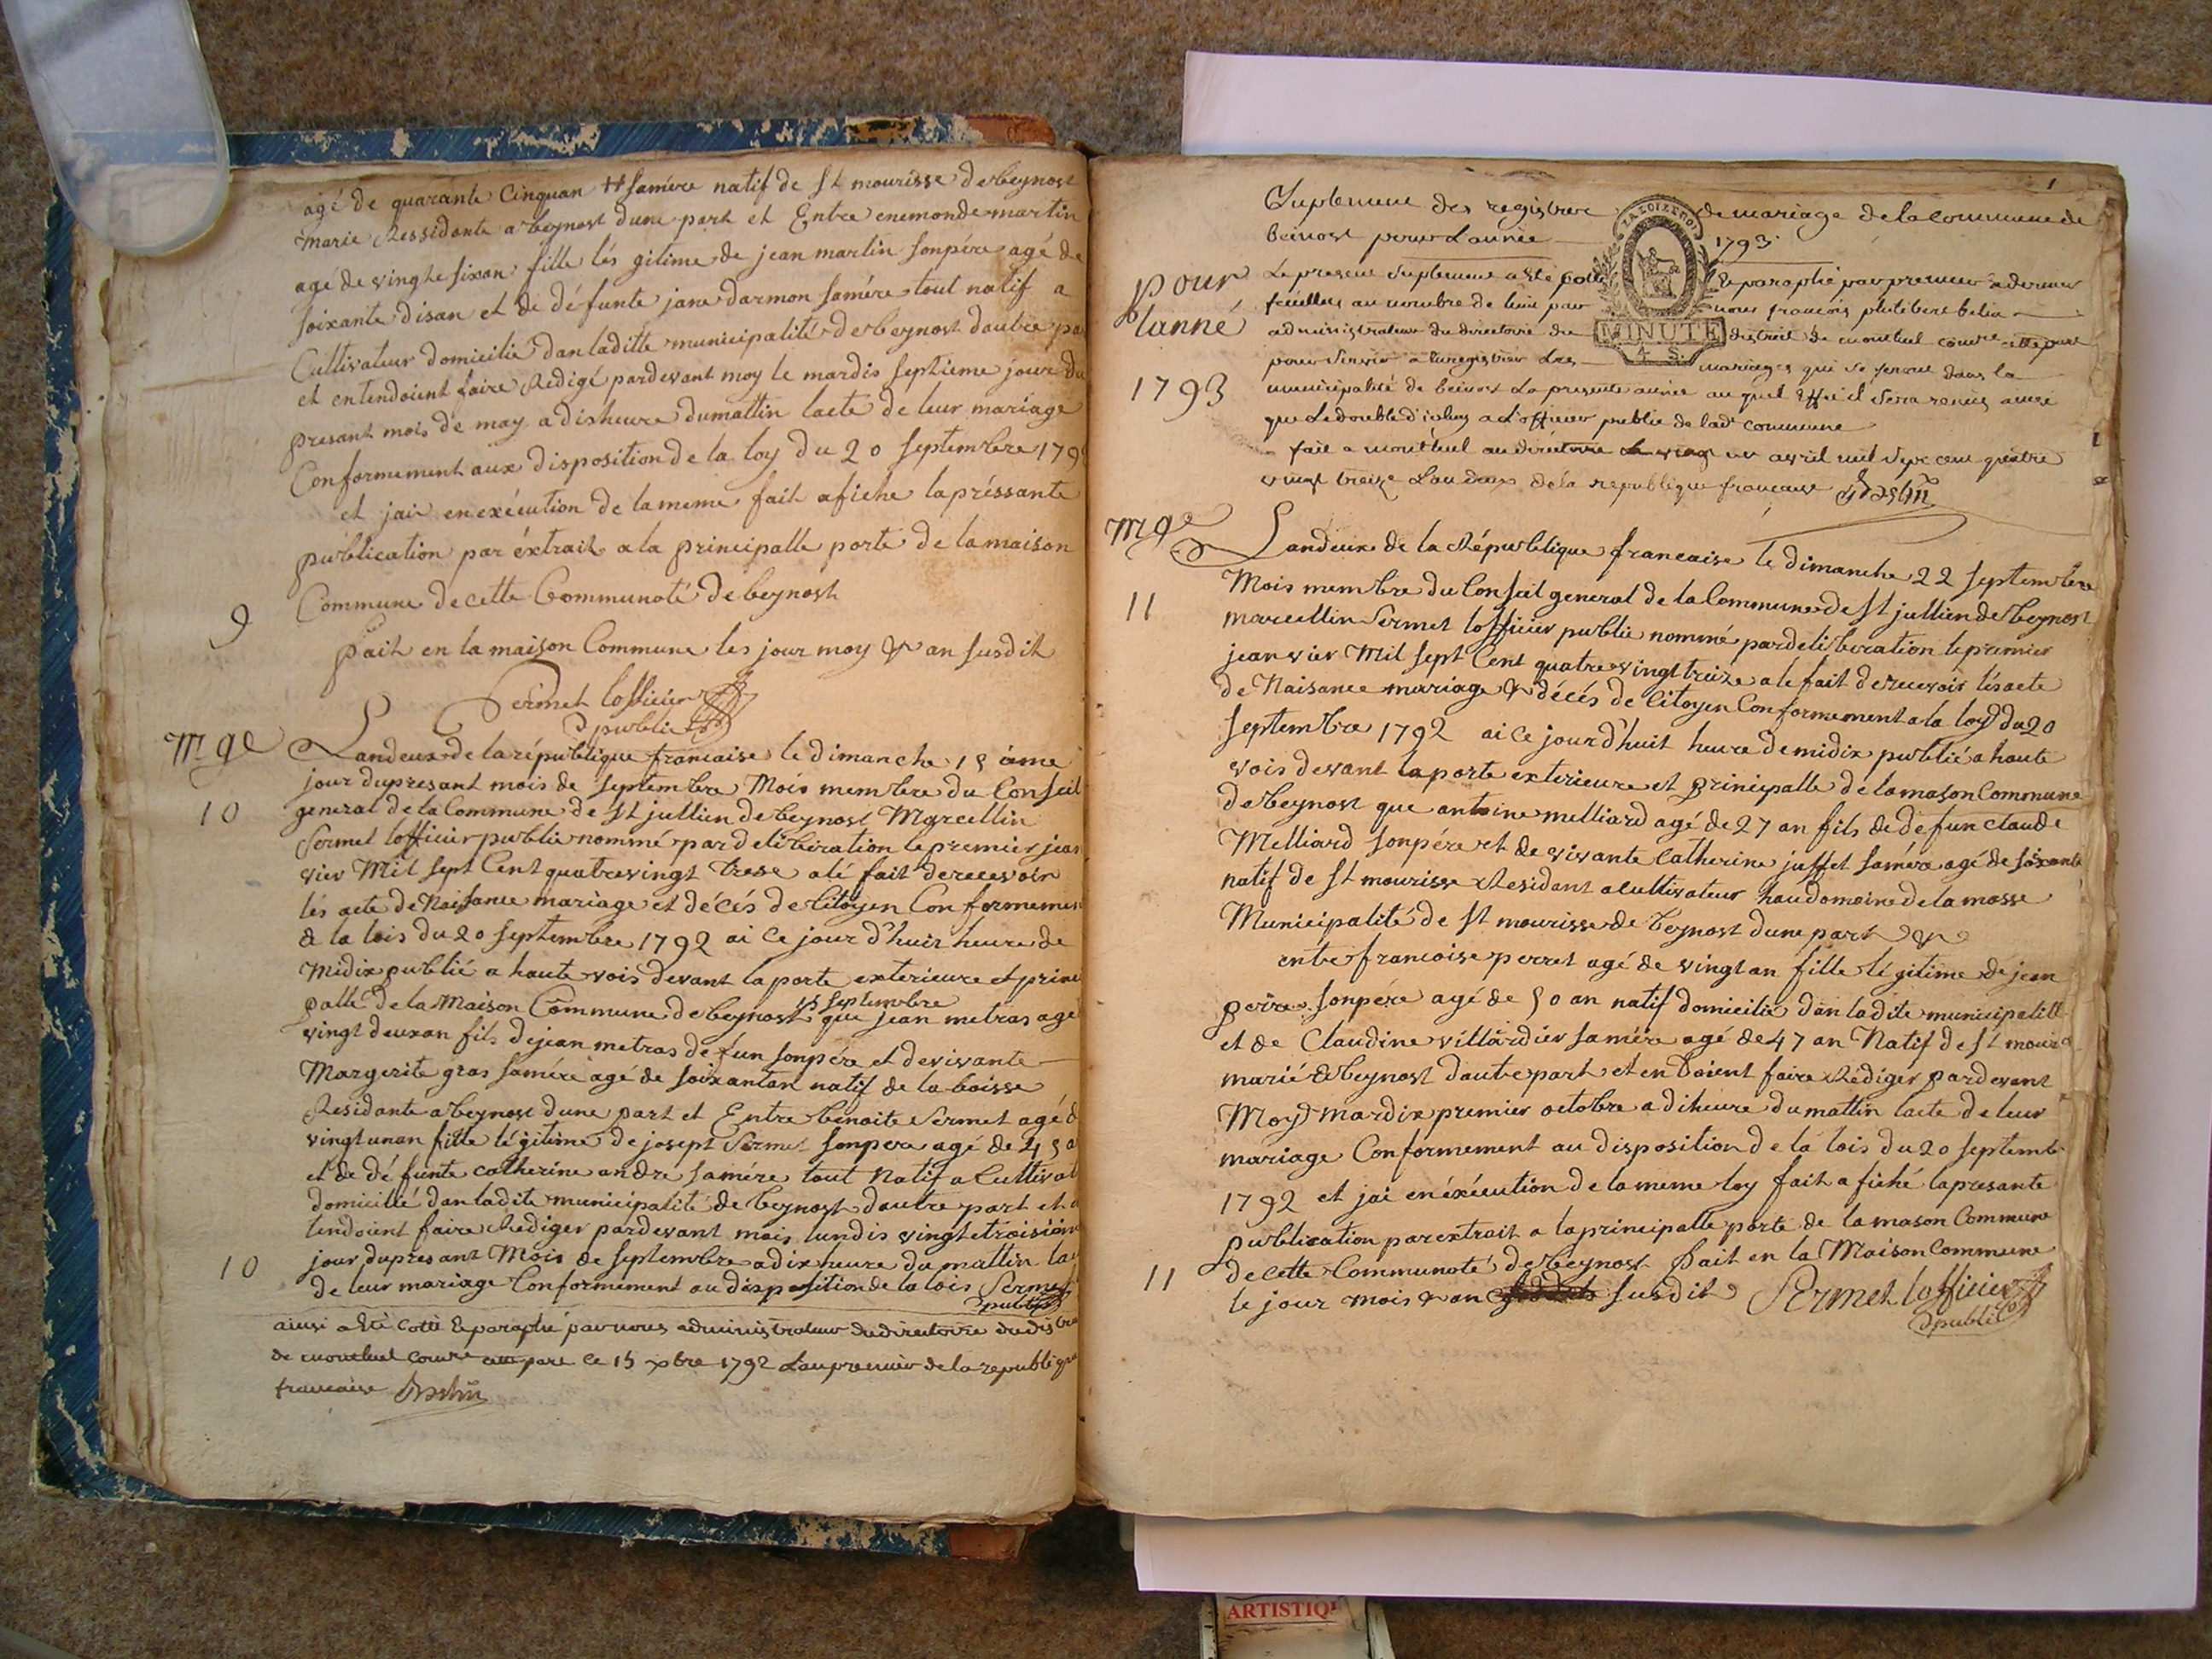 agé de quarante Cinquan # samére natif de st mourisse de beynost
marie Ressidente a beynost dune part et Entre enemonde martin
agé de vingt e sixan fille lés gitime de jean martin sonpére agé de
soixante disan et de défunte jane darmon samére tout natif a
Cultivateur domicilié dan laditte municipalité de beynost dautre pa
et entendoient faire Redigé pardevant moy le mardis septieme jour du
presant mois de may a dixheure dumattin lacte de leur mariage
Conformement aux disposition de la loy du 20 septembre 179
et jai en exécution de lameme fait afiche la préssante
publication par éxtrait a la principalle porte de lamaison
Commune de cette Communoté de beynost
9
fait en la maison Commune les jour moy & an susdit
Sermet lofficier
publie
Mge
Landeux de la république francaise le dimanche 15 éme
jour dupresant mois de septembre Mois membre du Conseil
10
general de la Commune de st jullien de beynost Marcellin
Sermet lofficier publie nommé par deliberation le premier jean
vier Mil sept Cent quatrevingt trese a lé fait de recevoir
lés acte de Naisance mariage et décés de Citoyen Conformemen
a la lois du 20 septembre 1792 ai Ce jour d'huit heure de
Midix publié a haute vois devant la porte exterieure et princi
palle de la Maison Commune de beynost 15 septembre que jean metras agé
vingt deuxan fils dejean metras defun sonpére et devivante
Margerite gras samére agé de soixantan natif de la boisse
Residante a beynost dune part et Entre benoite Sermet agé d
vingtunan fille légitime de josept Sermet sonpere agé de 45 a
et de défunte catherine andre samére tout Natif a Cultivat
domicilié dan ladite municipalité de beynost dautre part et e
tendoient faire Rediger pardevant mois lundis vingtetroisiém
10
jour dupresant Mois de septembre a dixheure du mattin la
de leur mariage Conformement au disposition de la lois Sermet
publie
ainsi a été cotté & paraphé par nous administrateur du directoire du dis
de montluel cour cette part ce 15 xbre 1792 Lan premier de la republiqu
francaise
1
Suplement des registres de mariage de la commune de
beinost pour l'année 1793
pour
lanné
1793
Le present suplement a été cotté & paraphé par premier & dernier
feuillet au nombre de huit par nous francois philibert
administrateur du directoire du district de montluel cour cette part
MINUTE
4 S.
pour servir a enregistrer les mariages qui se feront dans la
municipalité de beinost la presente année au quel effet il sera remis avec
que le double d'iceluy a L'officier publie de lad commune
fait a montluel au directoire le vingt un avril mil sept cent quatre
vingt treize L'an deux de la republique francaise
Mge
Landeux de la République francaise le dimanche 22 septembre
11
Mois membre du Conseil general de la Commune de st jullien de beynost
marcellin Sermet lofficier publie nommé pardeliberation le premier
jeanvier Mil sept Cent quatrevingt treize a le fait de recevoir lés acte
de Naisance mariage & décés de Citoyen Conformement a la loy du 20
septembre 1792 ai Ce jour d'huit heure de midix publié a haute
vois devant laporte exterieure et principalle de lamason Commune
de beynost que antoine melliard agé de 27 an fils de defun Claude
Melliard sonpére et de vivante Catherine juffet samére agé de soixante
natif de st mourisse Residant a Cultivateur haudomaine de la masse
Municipalité de st mourisse de beynost dune part &
entre francoise perret agé de vingtan fille légitime de jean
perre sonpére agé de 50 an natif domicilié dan ladite municipalité
et de Claudine villardier samére agé de 47 an Natif de st mouri
marié de beynost dautrepart et en toient faire Rediger pardevant
Moy mardix premier octobre a diheure du mattin lacte de leur
mariage Conformement au disposition de la lois du 20 septemb
1792 et jai en éxécution de la meme loy fait afiché la presante
publication par extrait a la principalle porte de la mason Commune
de cette Communoté de beynost fait en la Maison Commune
11
le jour mois & an susdit Sermet lofficier
publie
ARTISTIQ